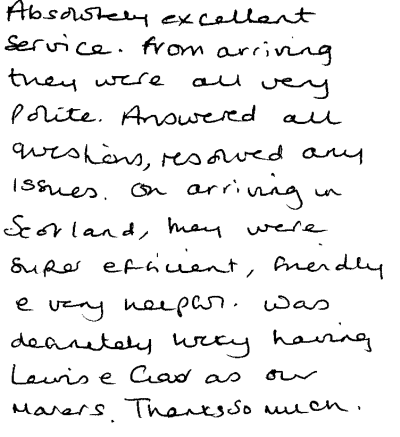 Absolutely excellent
service. From arriving
they were all very
Polite. Answered all
questions, resolved any
Issues. On arriving in
Scotland, they were
super efficient, friendly
& very helpful. Was
definetely lucky having
Lewis & Chad as our
Movers. Thanks so much.